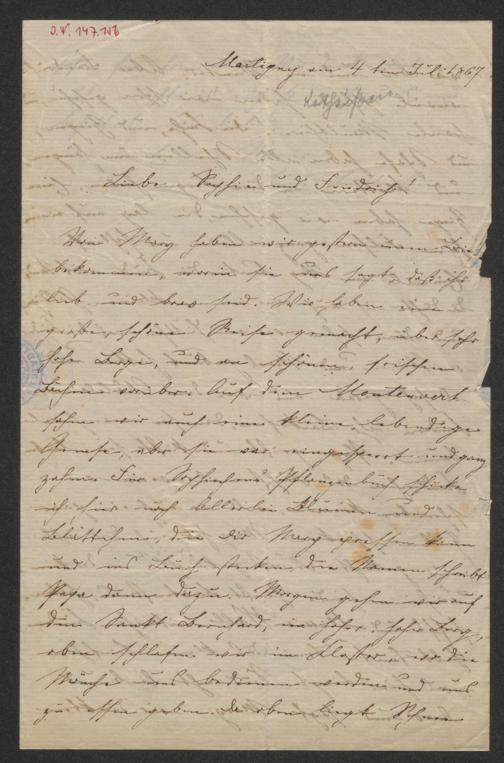 J.N. 147.116
Martigny am 4ten Juli 1867
Liebe Sophie und Friedrich!
Von Mary haben wir gestern einen Brief
bekommen, worin sie uns sagt, daß ihr
lieb und brav seid. Wir haben eine
große, schöne Reise gemacht, über sehr
hohe Berge, und an schönen, frischen
vorüber. Auf dem Montenvert
sahen wir auch eine kleine lebendige
Gemse, aber sie war eingesperrt und ganz
zahm. Für Sophiechens Pflanzenbuch schicke
ich hier noch allerlei Blumen und
Blättchen, die die Mary pressen kann
und ins Buch stecken, die Namen schreibt
Papa dann dazu. Morgen gehen wir auf
den Sankt Bernhard, ein hoher, hoher Berg,
oben schlafen wir im Kloster, wo die
Mönche uns bedienen werden und uns
zu essen geben. Da oben liegt Schnee